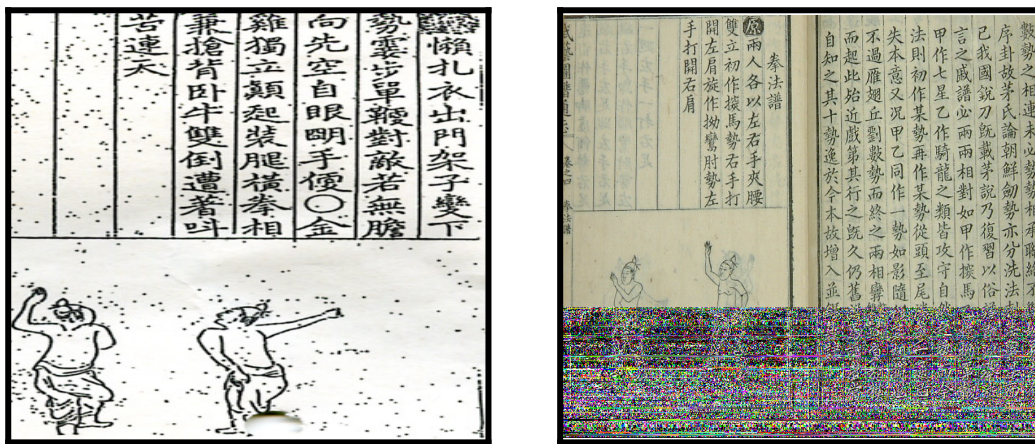 懶扎衣出門架子變下
勢霎步單鞭對敵若無膽
向先空自眼明手便〇金
雞獨立顛起裝腿橫拳相
兼搶背卧牛雙倒遭着叫
苦連天
數勢之相連必勢勢相承
序卦故茅氏論朝鮮劒勢亦分洗法
已我國說刀旣載茅說乃復習以俗
言之戚譜必兩兩相對如甲作探馬
甲作七星乙作騎龍之類皆攻守自
法則初作某勢再作某勢從頭至尾
失本意又況甲乙同作一勢如影隨
不過雁翅丘劉數勢而終之兩相
而起此殆近戱第其行之旣久仍舊
自知之其十勢逸於今本故增入並
拳法譜
原兩人各以左右手夾腰
雙立初作探馬勢右手打
開左肩旋作拗鸞肘勢左
手打開右肩
卷之四 拳法譜